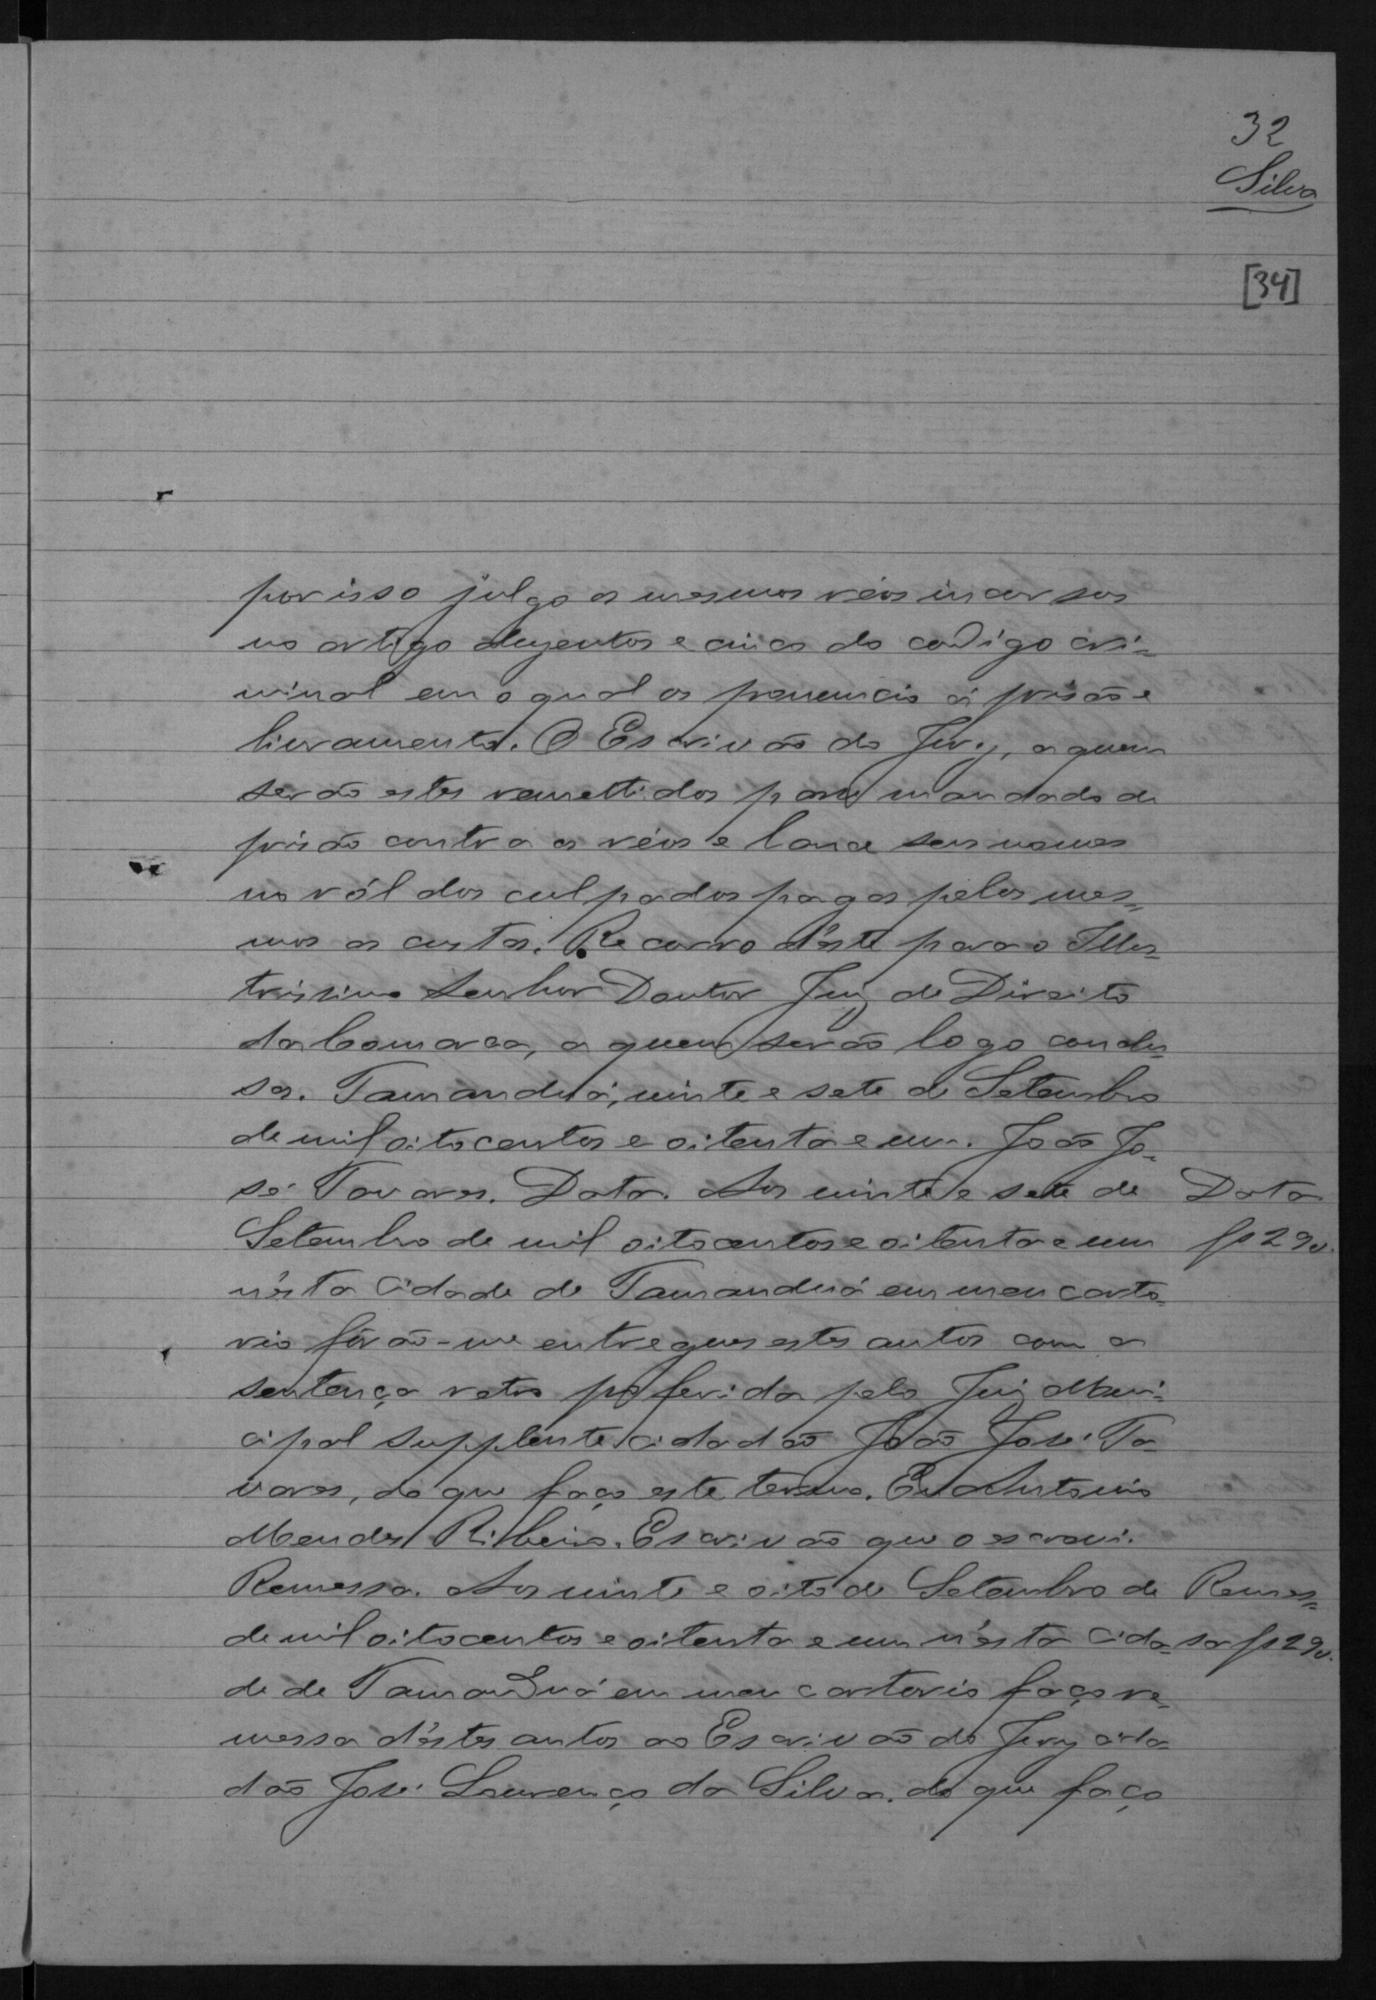 32
Silva
[34]
por isso julgo os mesmos réos incursos
no artigo duzentos e cinco do codigo cri=
minal em o qual os pronuncio á prisão e
livramento. O Escrivão do Jury, a quem
serão estes remettidos passe mandado de
prisão contra os réos e lance seus nomes
no ról dos culpados pagas pelos mes=
mos as custas. Recorro d'éste para o Illus=
trissimo Senhor Doutor Juiz de Direito
da Comarca, a quem serão logo conclu=
sos. Tamanduá, vinte e sete de Setembro
de mil oitocentos e oitenta e um. João Jo=
sé Tavares. Data. Aos vinte e sete de
Data
Setembro de mil oitocentos e oitenta e um
fs 29v.
n'ésta Cidade de Tamanduá em meu carto=
rio fôrão-me entregues estes autos com a
sentença retro proferida pelo Juiz Muni=
cipal supplente cidadão João José Ta=
vares, do que faço este termo. Eu Antonio
Mendes Ribeiro. Escrivão que o escrevi.
Remessa. Aos vinte e oito de Setembro de
Remes=
de mil oitocentos e oitenta e um n'ésta Cida=
sa fs 29v.
de de Tamanduá em meu cartorio faço re=
messa d'éstes autos ao Escrivão do Jury cida=
dão José Lourenço da Silva. do que faço